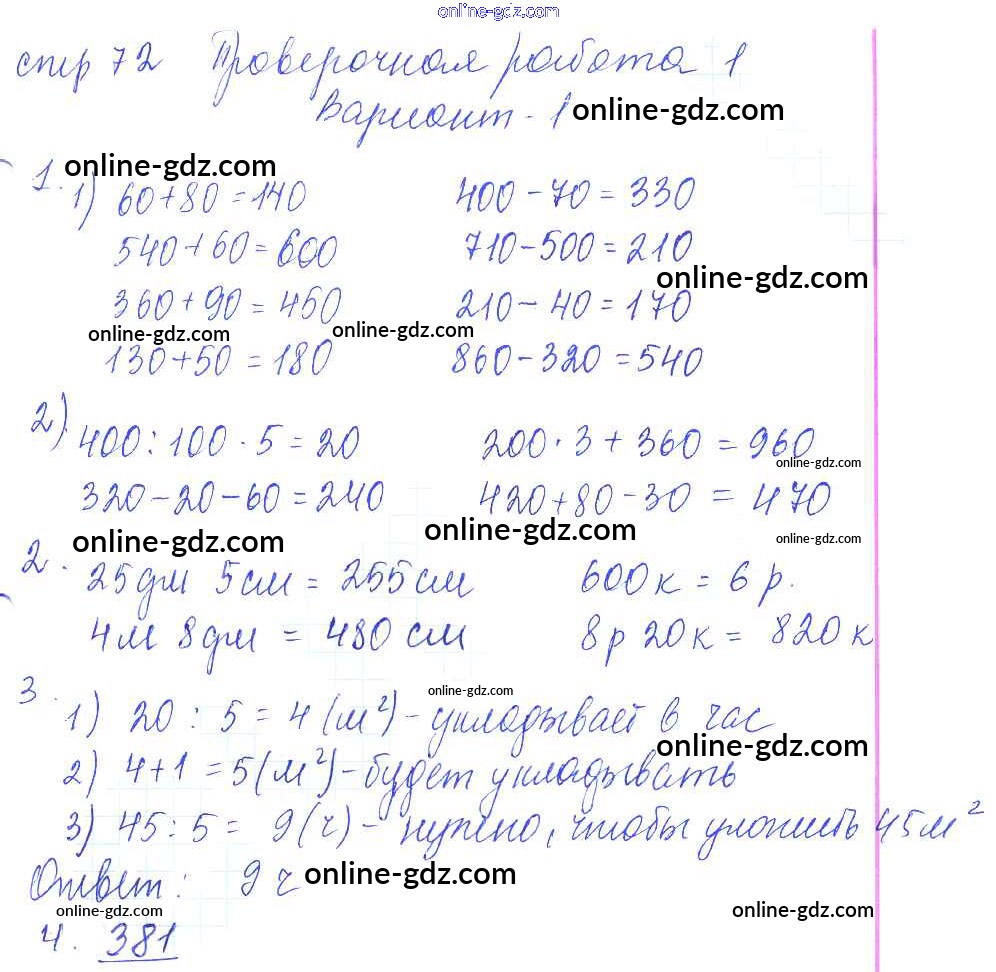 online-gdz.com
стр 72 Проверочная работа 1
Вариант - 1 online-gdz.com
online-gdz.com
1. 1) 60+80=140 400-70=330
540+60=600 710-500=210
online-gdz.com
360+90=450 210-40=170
online-gdz.com online-gdz.com
130+50=180 860-320=540
2) 400:100·5=20 200·3+360=960
online-gdz.com
320-20-60=240 420+80-30=470
online-gdz.com online-gdz.com online-gdz.com
2. 25дм 5см = 255см 600к = 6р.
4м 8дм = 480 см 8р 20к = 820к
online-gdz.com
3. 1) 20 : 5 = 4 (м²) - укладывает в час
online-gdz.com
2) 4+1=5(м²)-будет укладывать
3) 45:5= 9(ч) - нужно, чтобы уложить 45м²
Ответ: 9 ч online-gdz.com
online-gdz.com online-gdz.com
4. 381